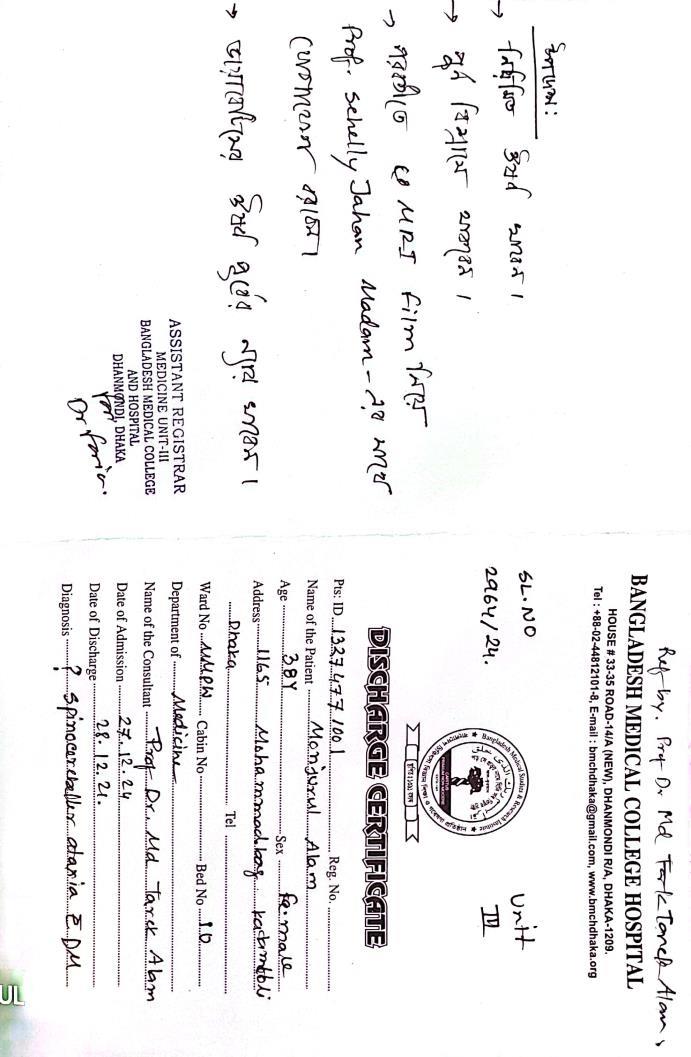 Ref by. Prof Dr. Md Tarek Alam,
BANGLADESH MEDICAL COLLEGE HOSPITAL
HOUSE # 33-35 ROAD-14/A (NEW), DHANMONDI R/A, DHAKA-1209.
Tel : +88-02-44812101-8, E-mail : bmchdhaka@gmail.com, www.bmchdhaka.org
SL. NO
2964/24.
Unit
III
Bangladesh Medical Studies & Research Institute
DISCHARGE CERTIFICATE
Pts: ID 13274771001 Reg. No.
Name of the Patient Monjurul Alam
Age 38Y Sex Fe.male
Address 1165 Mohammadbag Kadamtoli
Dhaka Tel
Ward No MMPW Cabin No Bed No 10
Department of Medicine
Name of the Consultant Prof. Dr. Md Tarek Alam
Date of Admission 27.12.24
Date of Discharge 28.12.21.
Diagnosis ? Spinocereballer ataxia c̄ DM
উপদেশ:
→ নিয়মিত ঔষধ খাবেন।
→ পূর্ণ বিশ্রামে থাকবেন।
→ পরবর্তীতে MRI Film নিয়ে
Prof. Schelly Jahan Madam-এর সাথে
যোগাযোগ করবেন।
→ ডায়াবেটিসের ঔষধ পূর্বের ন্যায় খাবেন।
ASSISTANT REGISTRAR
MEDICINE UNIT-III
BANGLADESH MEDICAL COLLEGE
AND HOSPITAL
DHANMONDI, DHAKA
for
Dr. Faria.
UL